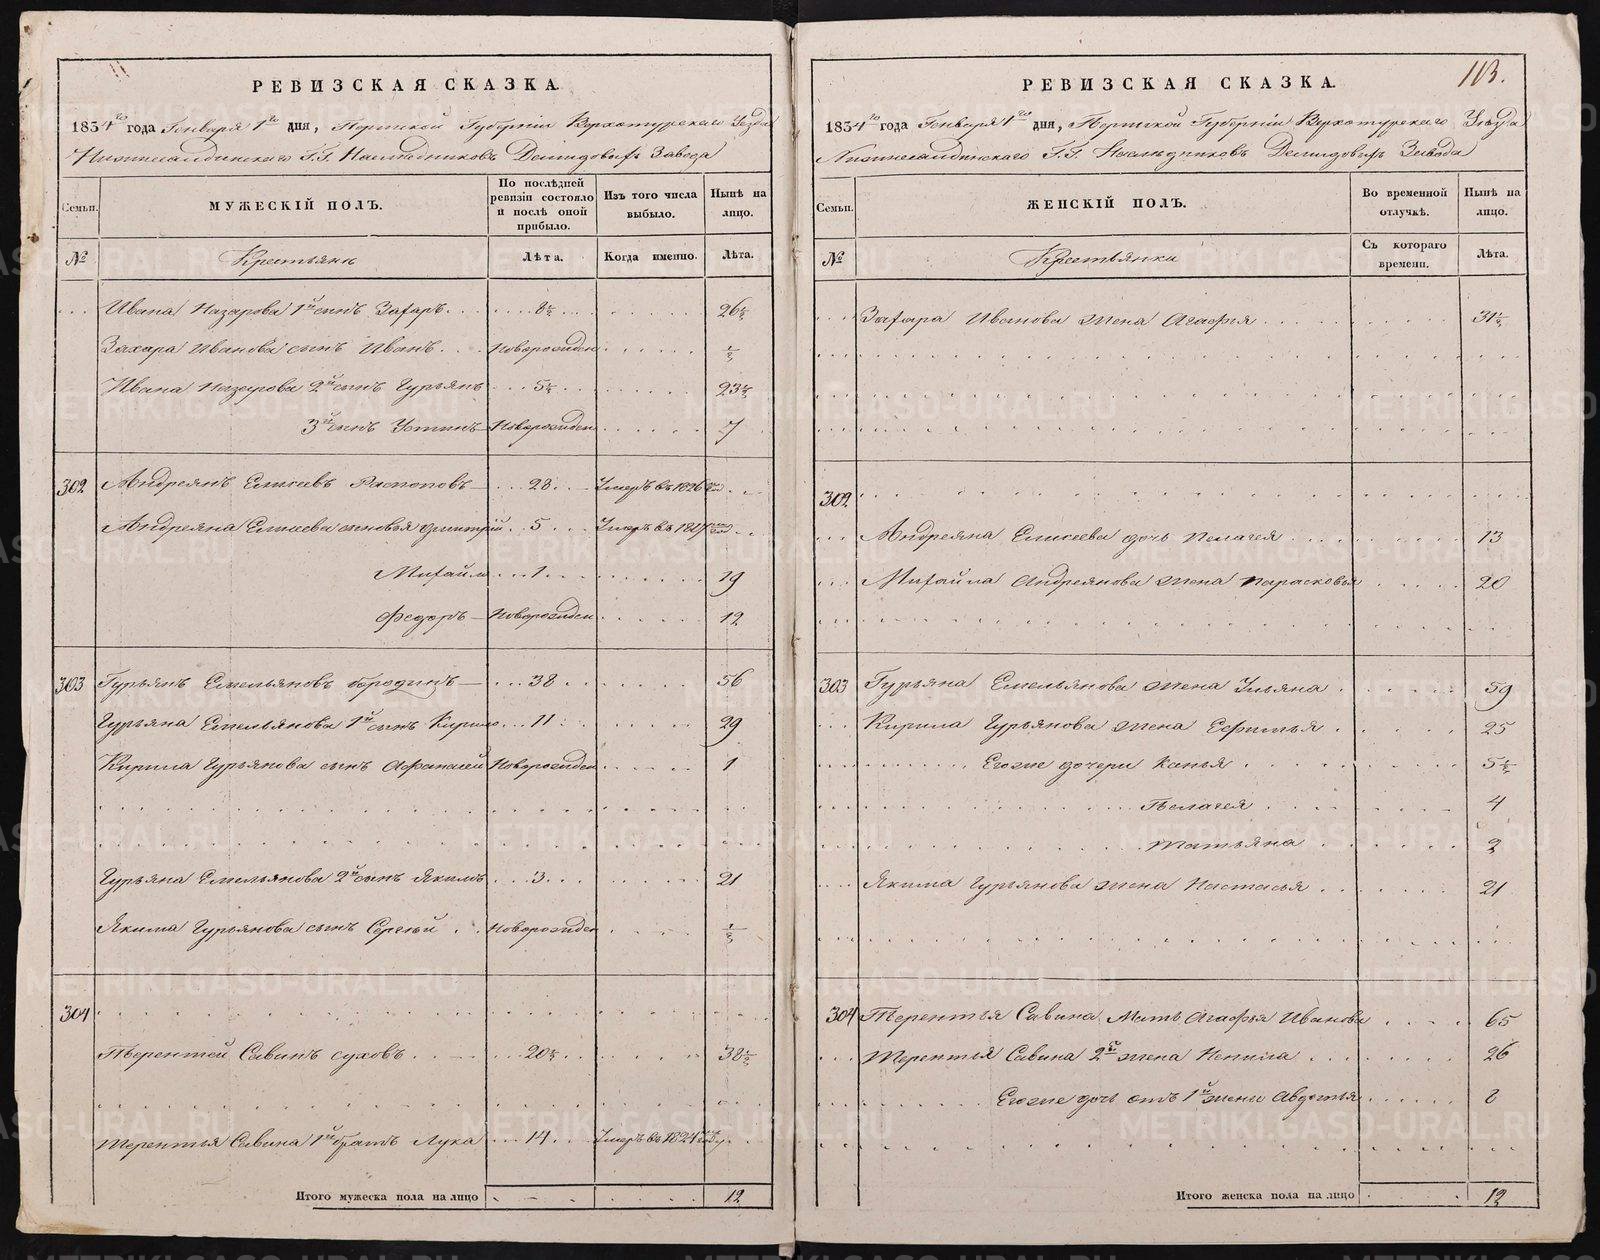 РЕВИЗСКАЯ СКАЗКА
1834го года Генваря 1го дня, Пермской Губернiи Верхотурскаго Уезда
Нижнесалдинскаго Г.Г. Наследниковъ Демидовыхъ Завода
Семьи.
МУЖЕСКIЙ ПОЛЪ.
По послѣдней ревизiи состояло и послѣ оной прибыло.
Изъ того числа выбыло.
Нынѣ на лицо.
№ Крестьянъ Лѣта. Когда именно. Лѣта.
Ивана Назарова 1й сынъ Захаръ 8½ 26½
Захара Иванова сынъ Иванъ Новорожден ½
Ивана Назарова 2й сынъ Гурьянъ 5½ 23½
3й сынъ Устинъ Новорожден 7
302 Андреянъ Елисеевъ Распоповъ 28 Умеръ въ 1826
Андреяна Елисеева сыновья Дмитрiй 5 Умеръ въ
Михайло 1 19
Федоръ Новорожден 12
303 Гурьянъ Емельяновъ Бородинъ 38 56
Гурьяна Емельянова 1й сынъ Кирило 11 29
Кирила Гурьянова сынъ Афанасей Новорожден 1
Гурьяна Емельянова 2й сынъ Якимъ 3 21
Якима Гурьянова сынъ Сергей Новорожден ½
304
Терентей Савинъ Суховъ 20½ 38½
Терентья Савина 1й братъ Лука 14 Умеръ въ 1824 году
Итого мужеска пола на лицо 12
113.
РЕВИЗСКАЯ СКАЗКА.
1834го года Генваря 1го дня, Пермской Губернiи Верхотурскаго Уезда
Нижнесалдинскаго Г.Г. Наследниковъ Демидовыхъ Завода
Семьи.
ЖЕНСКIЙ ПОЛЪ.
Во временной отлучкѣ.
Нынѣ на лицо.
№ Крестьянки Съ котораго времени. Лѣта.
Захара Иванова жена Агафья 31½
302
Андреяна Елисеева дочь Пелагея 13
Михайла Андреянова жена Парасковья 20
303 Гурьяна Емельянова жена Ульяна 59
Кирила Гурьянова жена Ефимья 25
Егоже дочери 5½
Пелагея 4
Татьяна 2
Якима Гурьянова жена Настасья 21
304 Терентья Савина Мать Агафья Иванова 65
Терентья Савина 2я жена Ненила 26
Егоже дочь отъ 1й жены Авдотья
Итого женска пола на лицо 12
METRIKI.GASO-URAL.RU